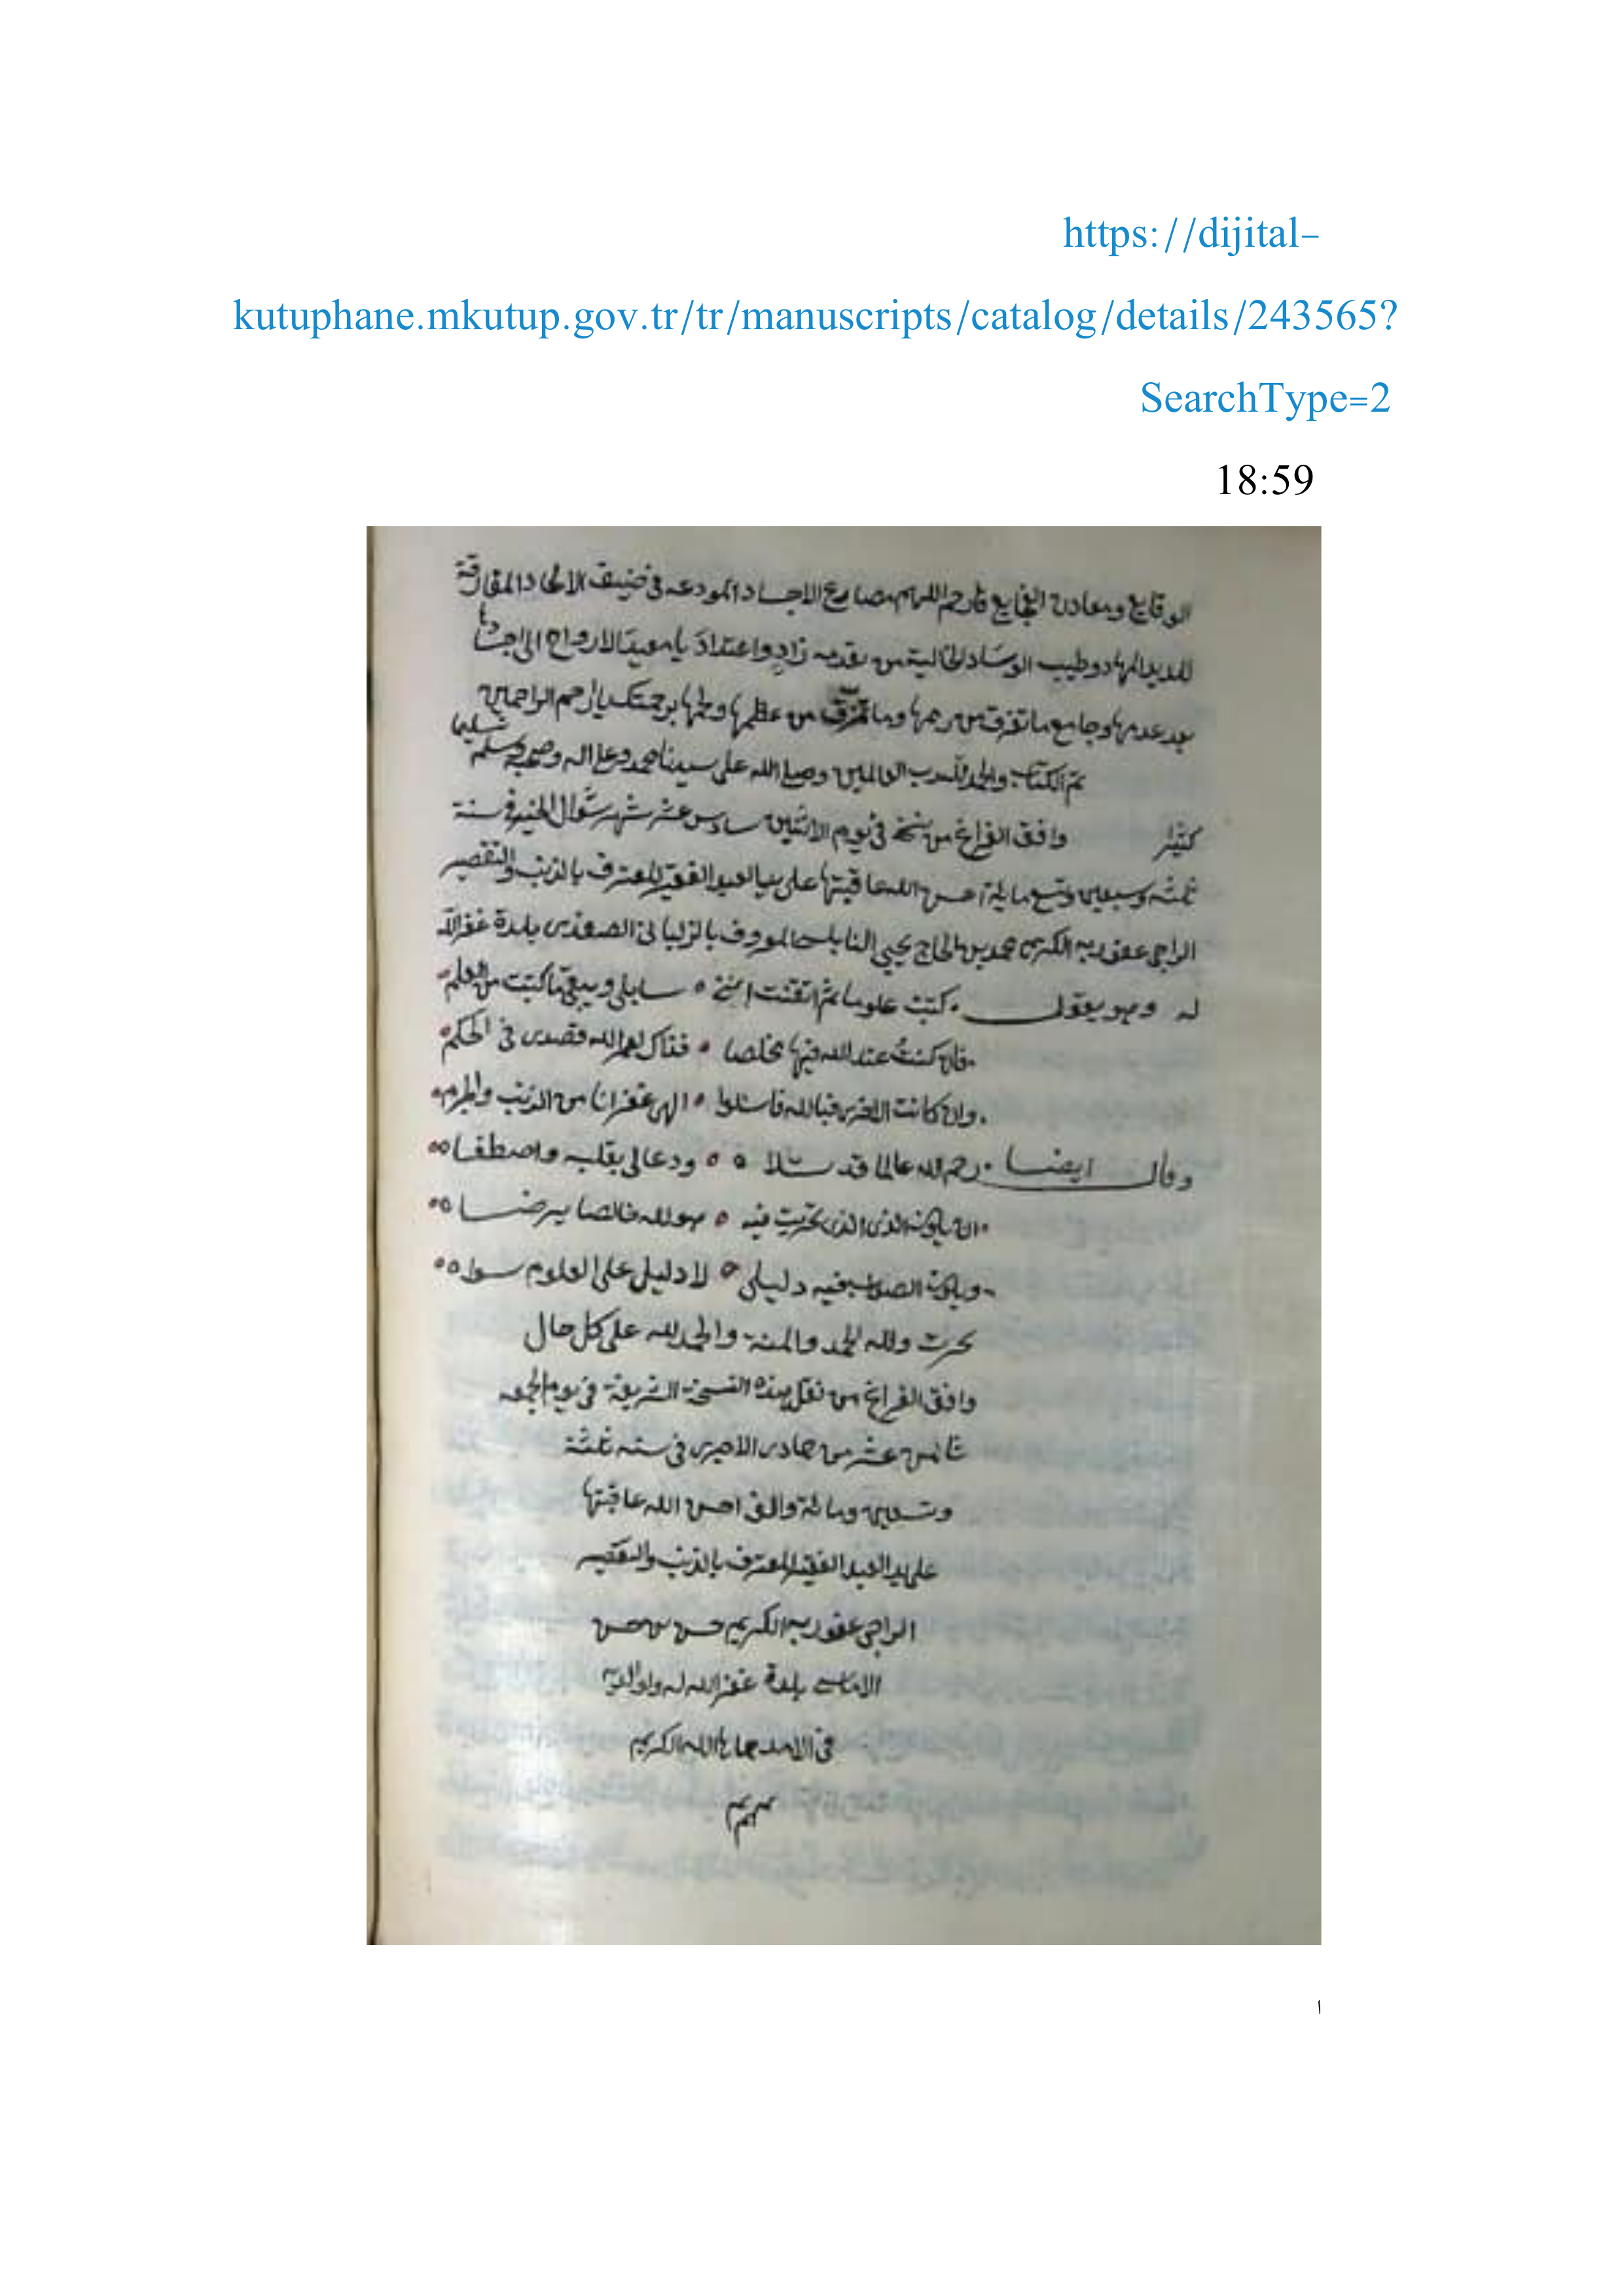 https://dijital-
kutuphane.mkutup.gov.tr/tr/manuscripts/catalog/details/243565?
SearchType=2
18:59
الوقايع ومعادن الفجايع فارحم اللهم مصارع الاجساد المودعه في ضيق الالحاد المفارقة
للذيذ المهاد وطيب الوساد الخالية من تقدمه زاد واعتداد يا معيد الارواح الى اجسادها
بعد عدمها وجامع ما تفرق من رممها وما تمزق من عظمها ولحمها برحمتك يا ارحم الراحمين
تم الكتاب والحمد لله رب العالمين وصلى الله على سيدنا محمد وعلى اله وصحبه وسلم تسليما
كثيرا وافق الفراغ من نسخه في يوم الاثنين سادس عشر شهر شوال في سنة
ثلثه وسبعين وتسع مايلة احسن الله عاقبتها على يد العبد الفقير المعترف بالذنب والتقصير
الراجي عفو ربه الكريم محمد بن الحاج يحيى النابلسي المعروف بالزلباني الصفدى بلدة غفر الله
له وهو يقول كتبت علوما ثم اتقنت نسخه سايلي ويبقى ما كتبت من العلم
فان كنت عند الله فيها مخلصا فذاك لعمر الله قصدى في الحكم
وان كانت الاخرى فبالله فاسئلوا الهى غفرانا من الذنب والجرم
وقال ايضا رحم الله عالما قد تلا ودعا لي بقلبه واصطفا
ان يكون الذى تحريت فيه هو لله خالصا يرضا
ويكون الصواب فيه دليلي لا دليل على العلوم سوا
تحرت ولله الحمد والمنة والحمد لله على كل حال
وافق الفراغ من نقل هذه النسخة الشريفة في يوم الجمعه
ثامن عشر من جمادى الاخرى في سنه ثلثة
وتسعين ومائة والف احسن الله عاقبتها
على يد العبد الفقير المعترف بالذنب والتقصير
الراجي عفو ربه الكريم حسن بن حسن
بلدة غفر الله له ولوالديه
في الله الكريم
١